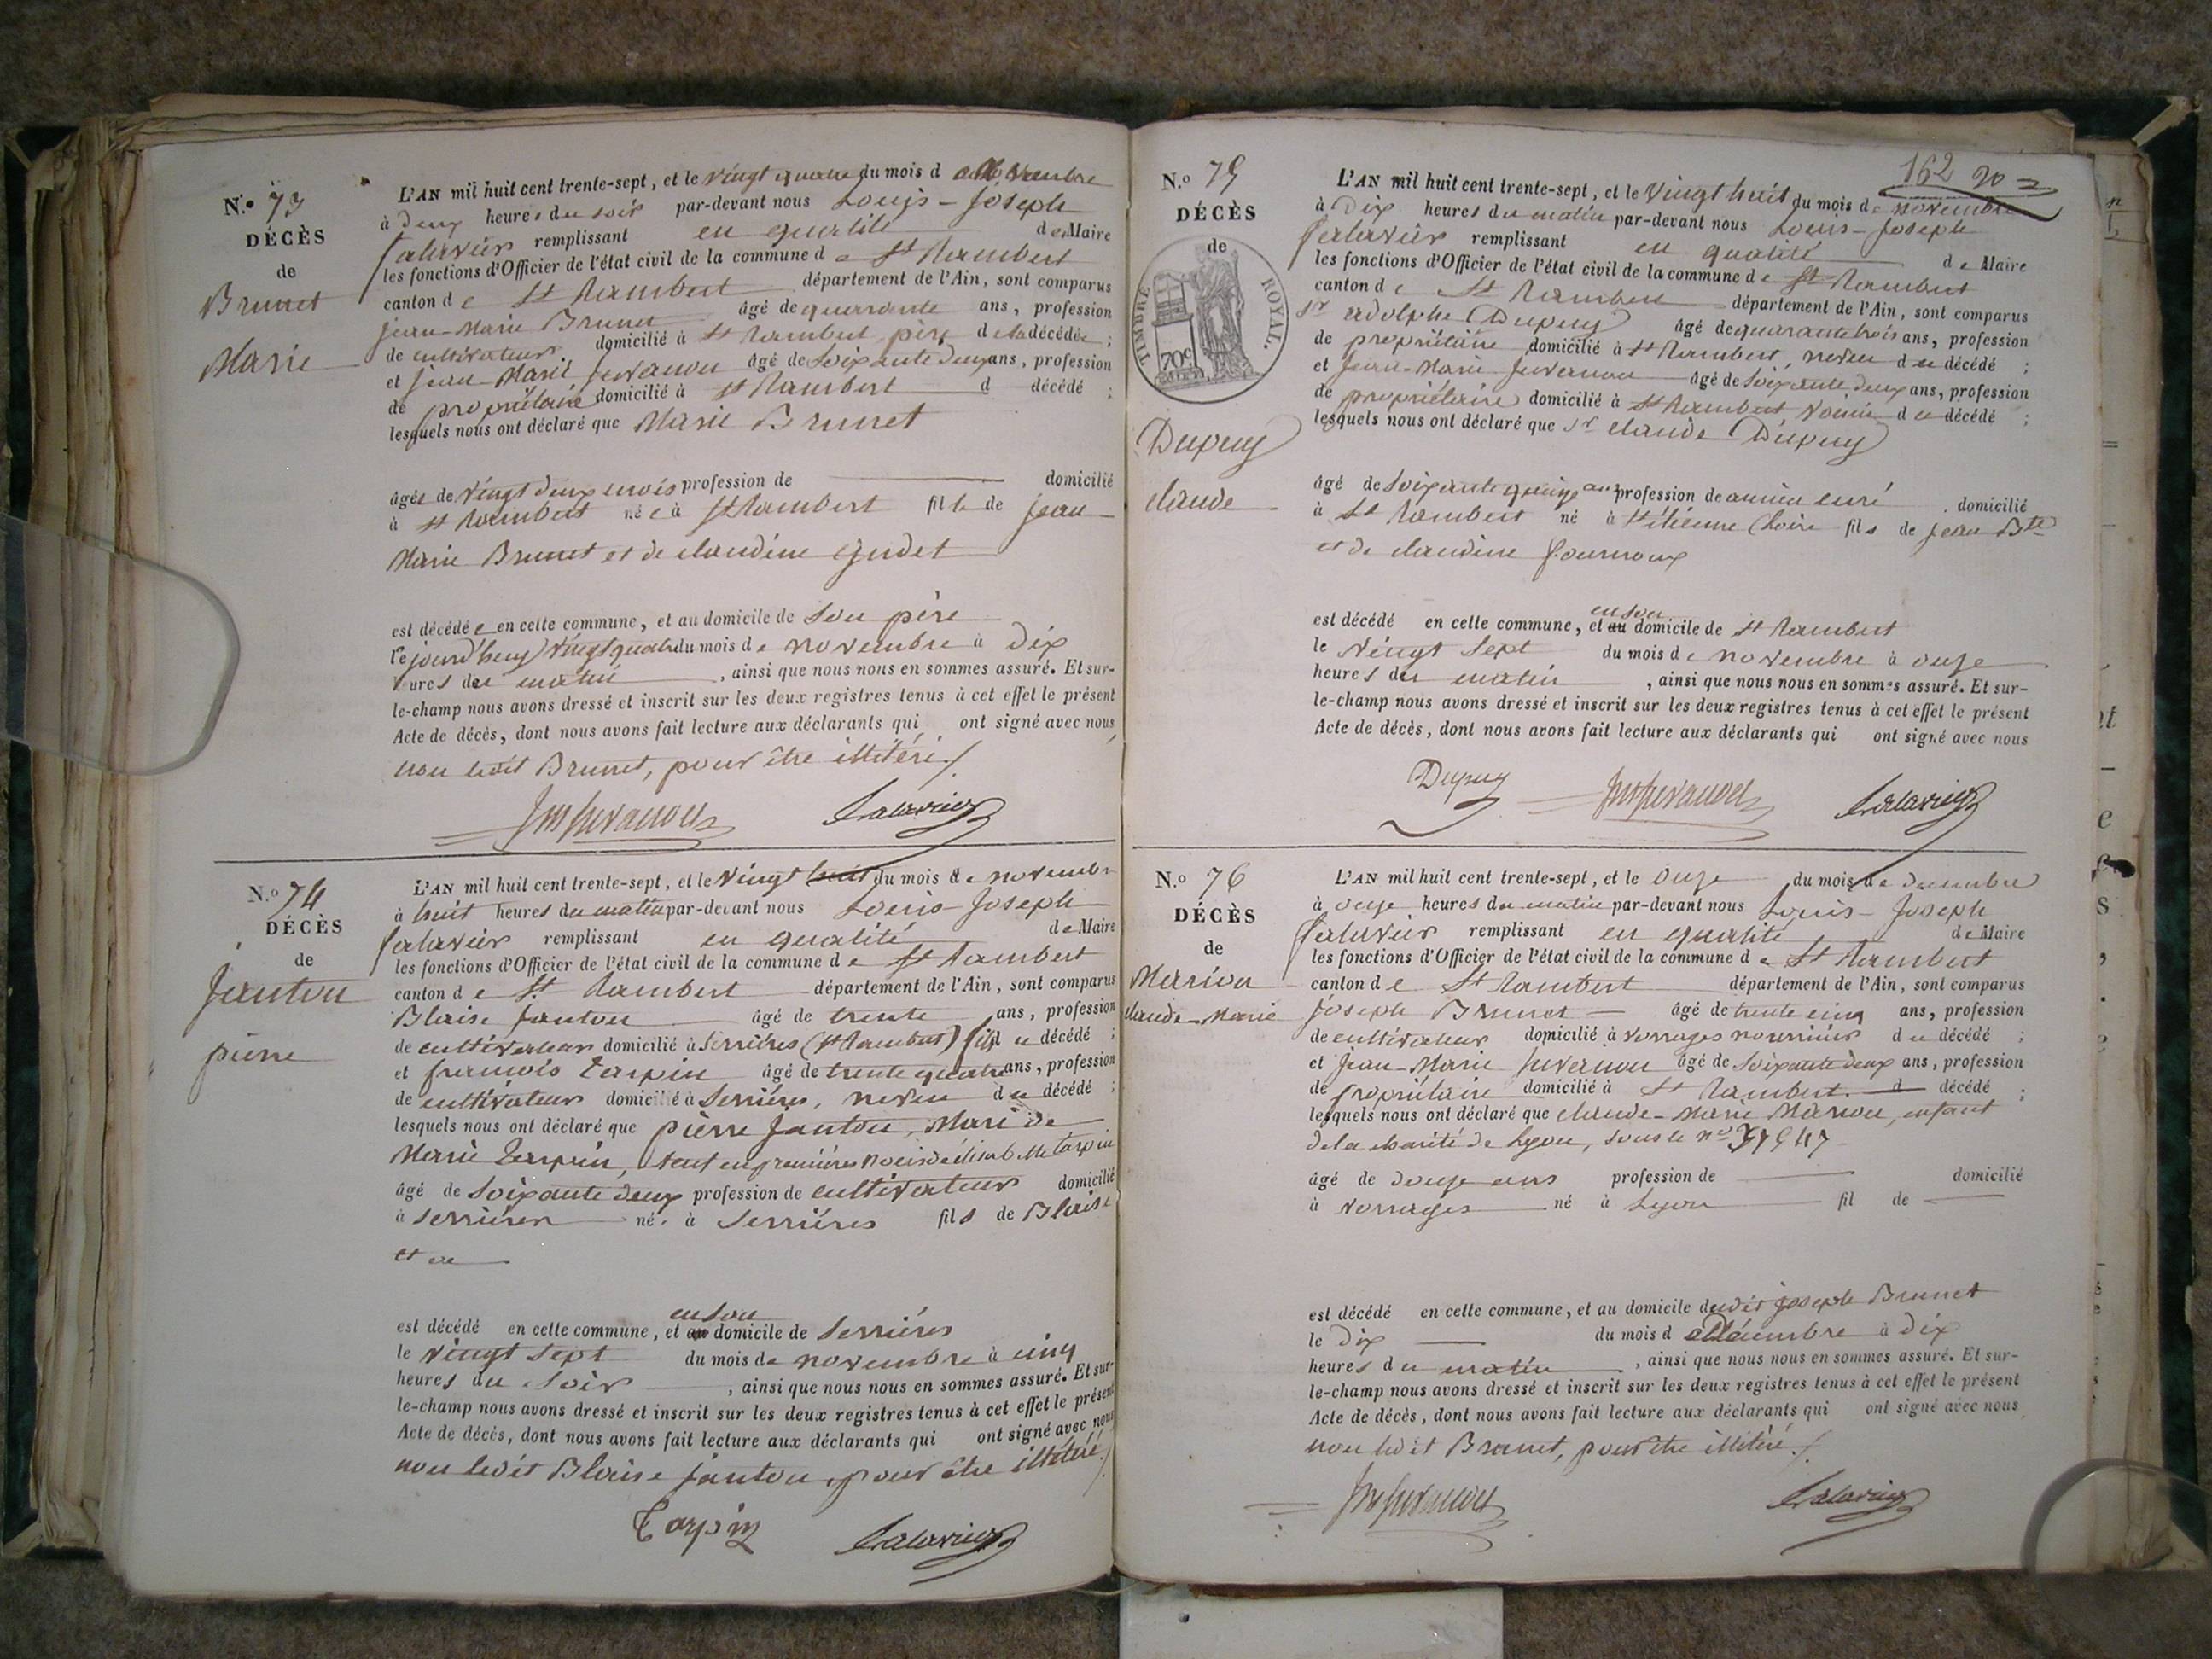 N.o 73
DÉCÈS
de
Brunet
Marie
L'AN mil huit cent trente-sept, et le vingt quatre du mois de novembre
à deux heures du soir par-devant nous Louis-Joseph
Salavier remplissant en qualité de Maire
les fonctions d'Officier de l'état civil de la commune de St Rambert
canton de St Rambert département de l'Ain, sont comparus
Jean-Marie Brunet âgé de quarante ans, profession
de cultivateur domicilié à St Rambert père de la décédée ;
et Jean-Marie Juvanon âgé de soixante deux ans, profession
de propriétaire domicilié à St Rambert d décédé ;
lesquels nous ont déclaré que Marie Brunet
âgée de vingt deux mois profession de domicilié
à St Rambert née à St Rambert fille de Jean
Marie Brunet et de claudine Gudet
est décédée en cette commune, et au domicile de son père
le jourd'huy vingt quatre du mois de novembre à dix
heures du matin , ainsi que nous nous en sommes assuré. Et sur-
le-champ nous avons dressé et inscrit sur les deux registres tenus à cet effet le présent
Acte de décès, dont nous avons fait lecture aux déclarants qui ont signé avec nous
non ledit Brunet, pour être illitéré ./.
JmJuvanon Salavier
N.o 74
DÉCÈS
de
Janton
pierre
L'AN mil huit cent trente-sept, et le vingt huit du mois de novembre
à huit heures du matin par-devant nous Louis-Joseph
Salavier remplissant en qualité de Maire
les fonctions d'Officier de l'état civil de la commune de St Rambert
canton de St Rambert département de l'Ain, sont comparus
Blaise Janton âgé de trente ans, profession
de cultivateur domicilié à Serrières (St Rambert) fils du décédé ;
et francois Tarpin âgé de trente quatre ans, profession
de cultivateur domicilié à Serrières, neveu du décédé ;
lesquels nous ont déclaré que pierre Janton, Mari de
Marie Tarpin, veuf en premières noces d'élisabeth Tarpin
âgé de soixante deux profession de cultivateur domicilié
à serrières né à Serrières fils de Blaise
et de
en son
est décédé en cette commune, et au domicile de Serrières
le vingt sept du mois de novembre à cinq
heures du soir , ainsi que nous nous en sommes assuré. Et sur-
le-champ nous avons dressé et inscrit sur les deux registres tenus à cet effet le présent
Acte de décès, dont nous avons fait lecture aux déclarants qui ont signé avec nous
non ledit Blaise Janton, pour être illitéré ./.
Tarpin Salavier
162 20
N.o 75
DÉCÈS
de
TIMBRE ROYAL.
70c
Dupuy
claude
L'AN mil huit cent trente-sept, et le vingt huit du mois de novembre
à dix heures du matin par-devant nous Louis-Joseph
Salavier remplissant en qualité de Maire
les fonctions d'Officier de l'état civil de la commune de St Rambert
canton de St Rambert département de l'Ain, sont comparus
Sr adolphe Dupuy âgé de quarante trois ans, profession
de propriétaire domicilié à St Rambert, neveu du décédé ;
et Jean-Marie Juvanon âgé de soixante deux ans, profession
de propriétaire domicilié à St Rambert voisin du décédé ;
lesquels nous ont déclaré que Sr claude Dupuy
âgé de soixante quinze ans profession de ancien curé domicilié
à St Rambert né à St étienne (Loire fils de Jean Bte
et de claudine fournoux
en son
est décédé en cette commune, et au domicile de St Rambert
le vingt sept du mois de novembre à onze
heures du matin , ainsi que nous nous en sommes assuré. Et sur-
le-champ nous avons dressé et inscrit sur les deux registres tenus à cet effet le présent
Acte de décès, dont nous avons fait lecture aux déclarants qui ont signé avec nous
Dupuy JmJuvanon Salavier
N.o 76
DÉCÈS
de
Marion
claude-Marie
L'AN mil huit cent trente-sept, et le onze du mois de décembre
à onze heures du matin par-devant nous Louis-Joseph
Salavier remplissant en qualité de Maire
les fonctions d'Officier de l'état civil de la commune de St Rambert
canton de St Rambert département de l'Ain, sont comparus
Joseph Brunet âgé de trente cinq ans, profession
de cultivateur domicilié à vorrages nourricier du décédé ;
et Jean-Marie Juvanon âgé de soixante deux ans, profession
de propriétaire domicilié à St Rambert d décédé ;
lesquels nous ont déclaré que claude-Marie Marion, enfant
de la charité de Lyon, sous le no
âgé de douze ans profession de domicilié
à vorrages né à Lyon fil de
est décédé en cette commune, et au domicile dudit Joseph Brunet
le dix du mois de Décembre à dix
heures du matin , ainsi que nous nous en sommes assuré. Et sur-
le-champ nous avons dressé et inscrit sur les deux registres tenus à cet effet le présent
Acte de décès, dont nous avons fait lecture aux déclarants qui ont signé avec nous
non ledit Brunet, pour être illitéré ./.
JmJuvanon Salavier